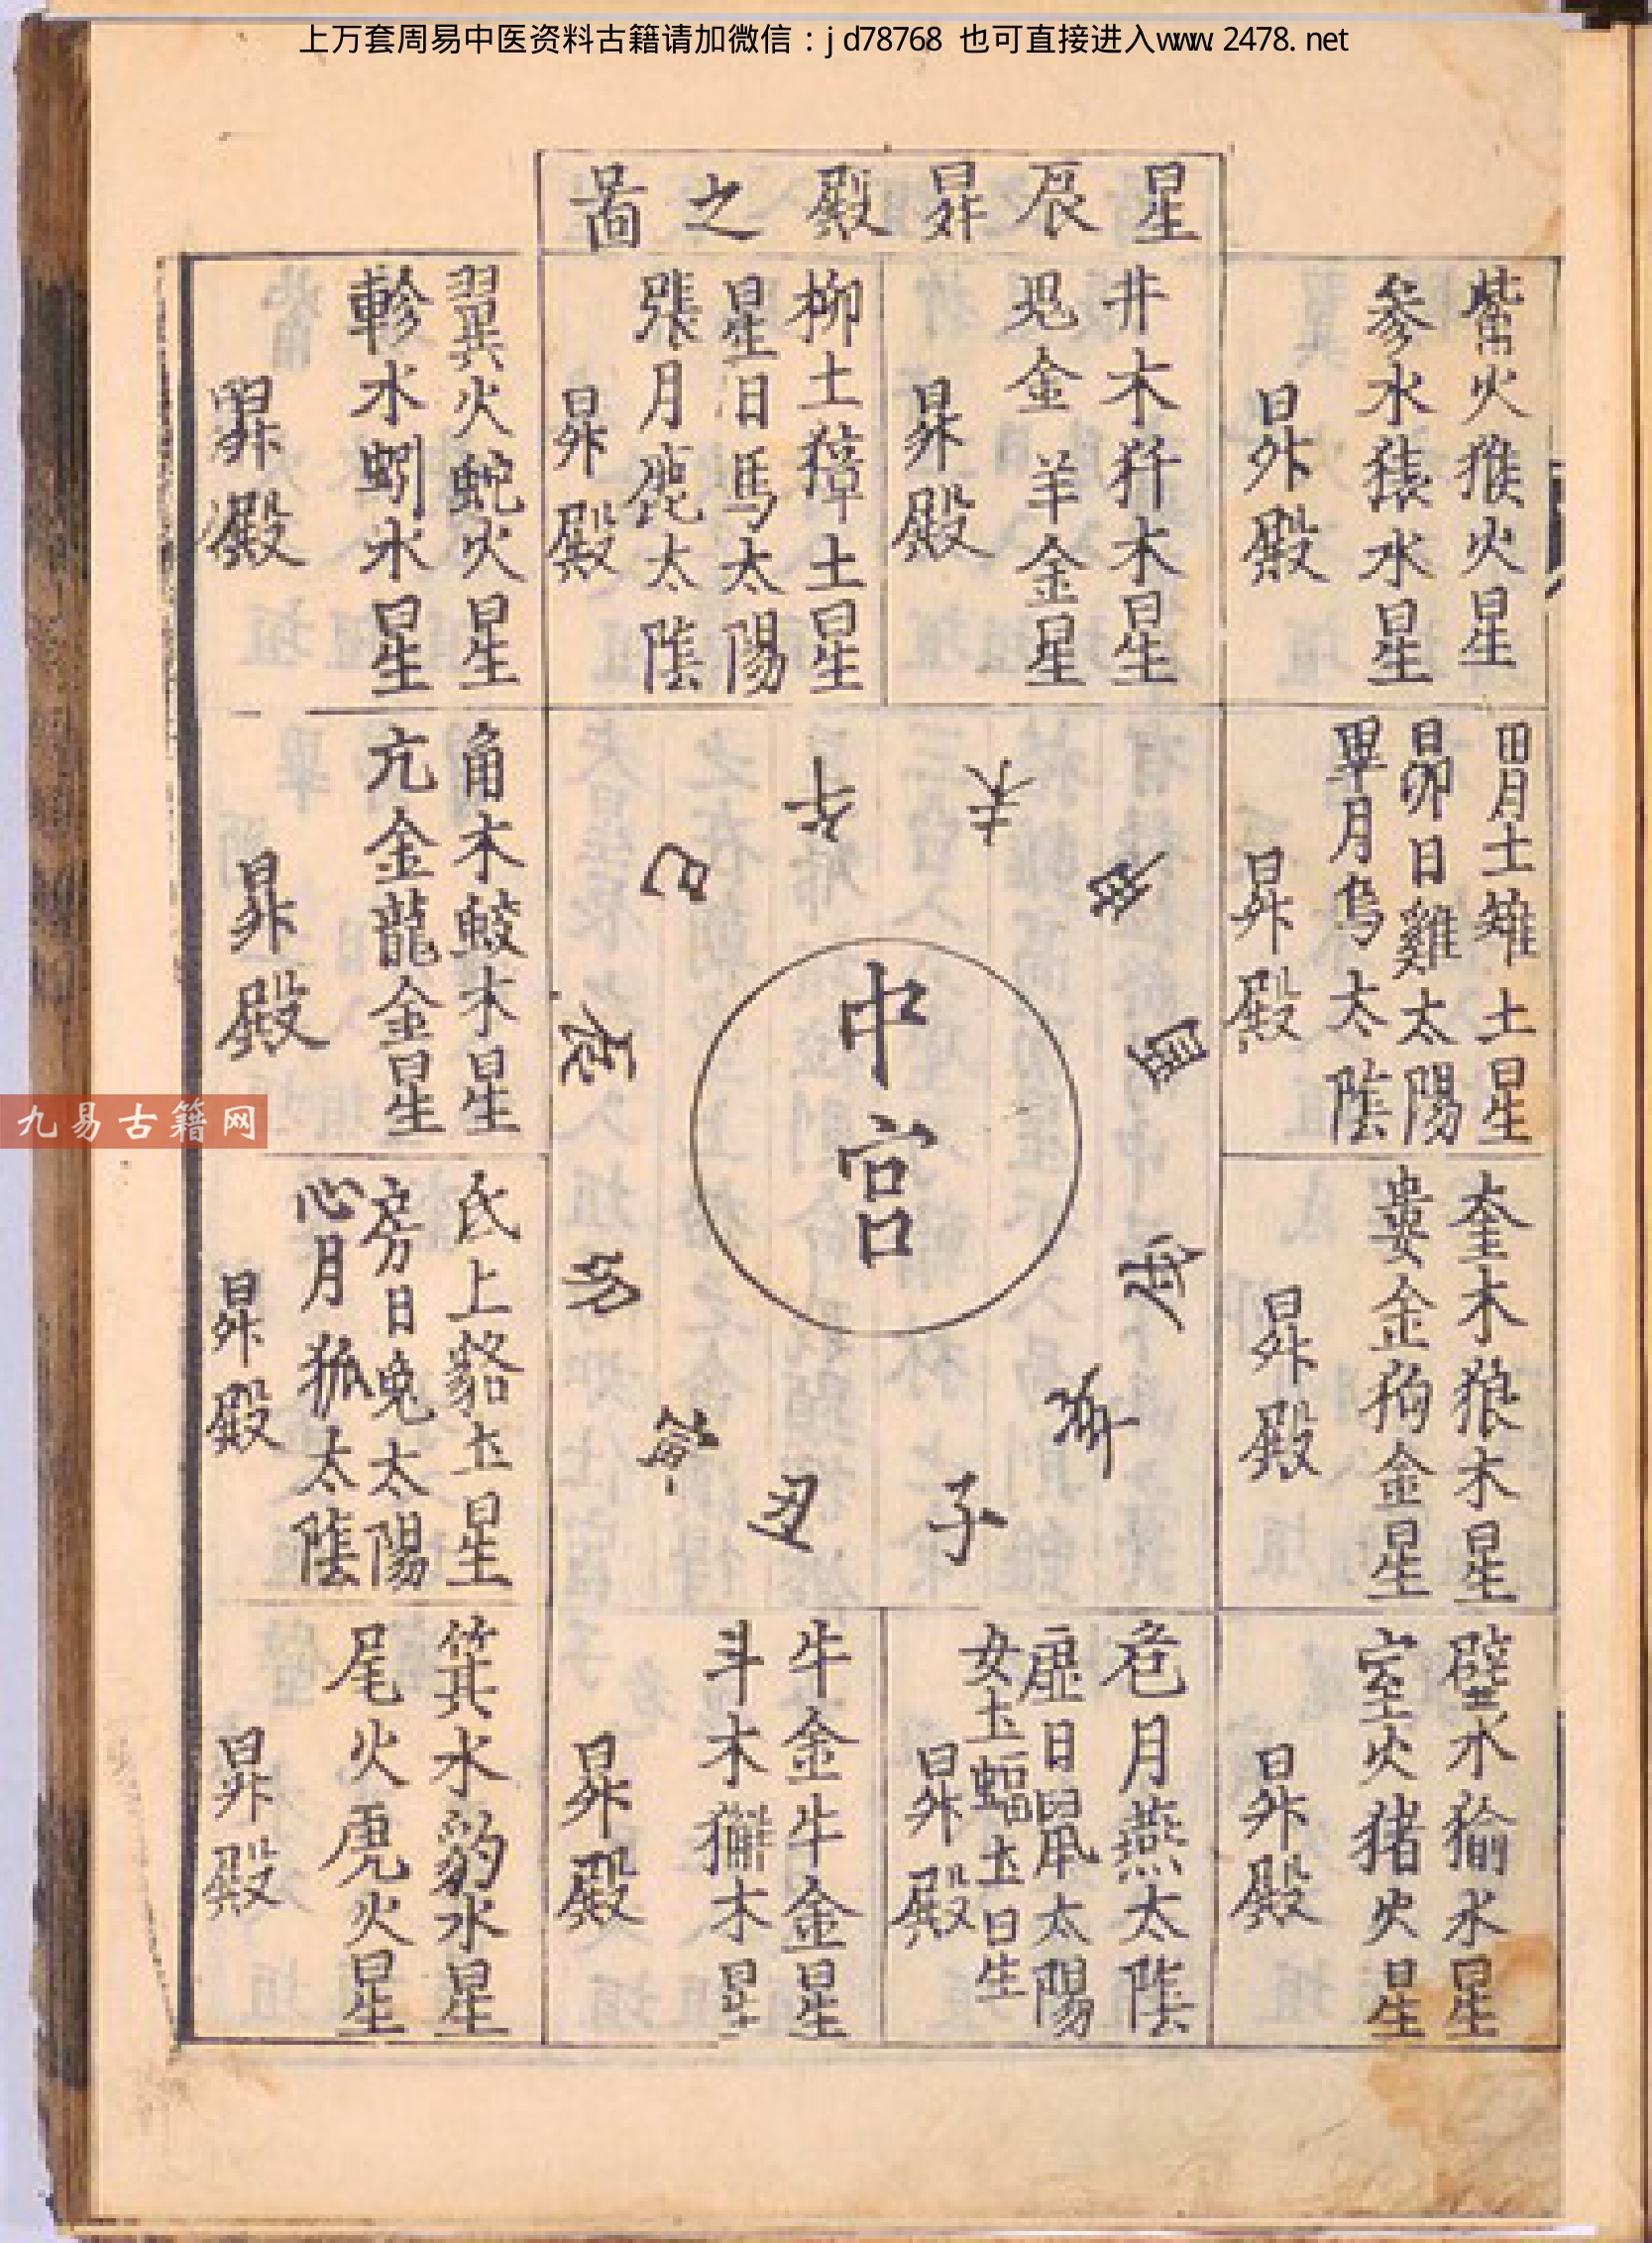 上万套周易中医资料古籍请加微信：jd78768 也可直接进入www.2478.net
星辰昇殿之啚
觜火猴火星
參水猿水星
昇殿
井木犴木星
鬼金羊金星
昇殿
柳土獐土星
星日馬太陽
張月鹿太陰
昇殿
翼火蛇火星
軫水蚓水星
昇殿
胃土雉土星
昴日雞太陽
畢月烏太陰
昇殿
奎木狼木星
婁金狗金星
昇殿
午
未
申
酉
戌
亥
子
丑
寅
卯
辰
巳
中宮
角木蛟木星
亢金龍金星
昇殿
氐土貉土星
房日兔太陽
心月狐太陰
昇殿
壁水㺄水星
室火猪火星
昇殿
危月燕太陰
虛日鼠太陽
女土蝠土日生
昇殿
牛金牛金星
斗木獬木星
昇殿
箕水豹水星
尾火虎火星
昇殿
九易古籍网